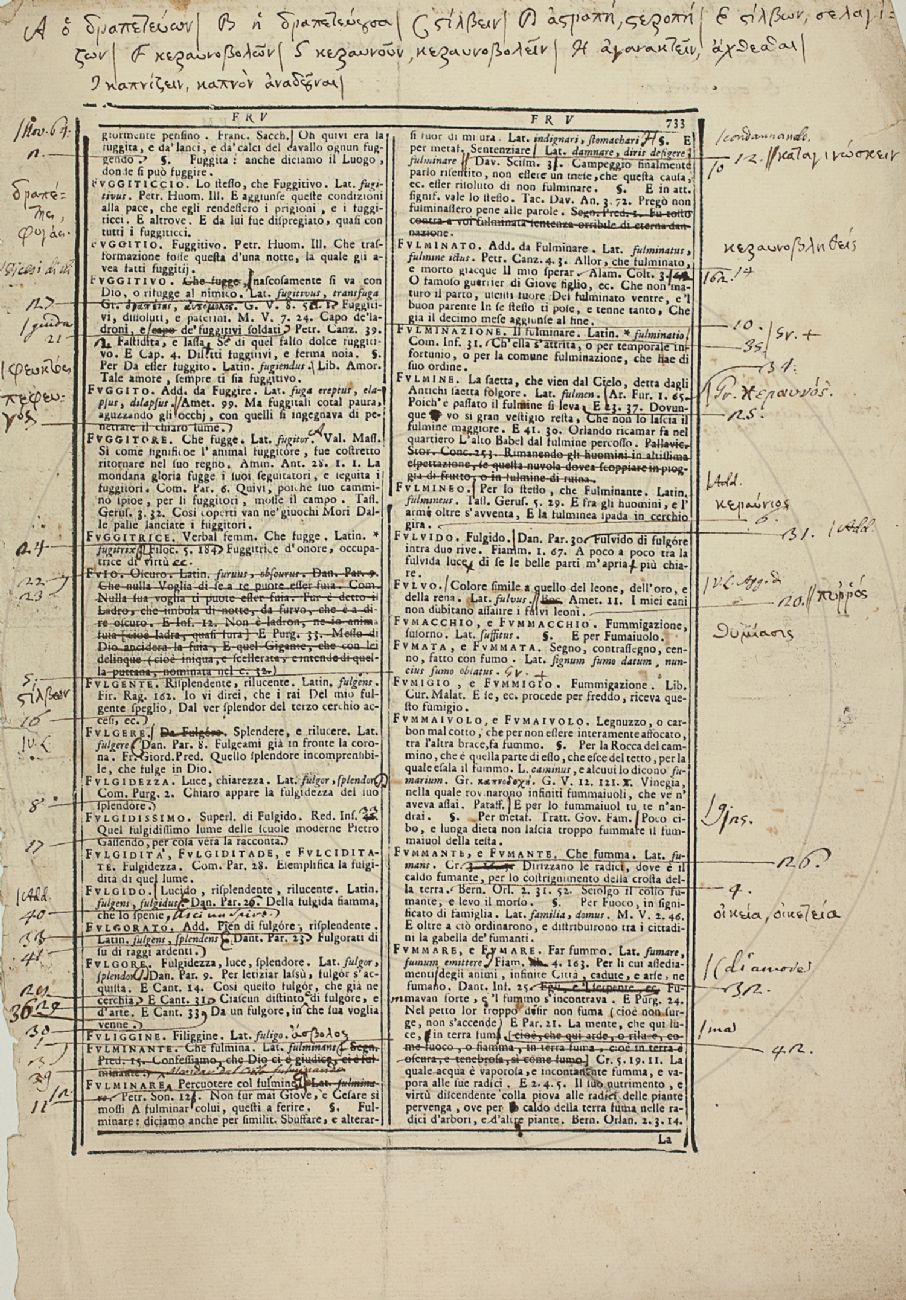 A ὁ δραπετεύων / B ἡ δραπετεύουσα / C στίλβειν / D ἀστραπή, στεροπή / E στίλβων, σελαγί-
ζων / F κεραυνοβολῶν / G κεραυνοῦν, κεραυνοβολεῖν / H ἀγανακτεῖν, ἄχθεσθαι /
καπνίζειν, καπνὸν ἀναδιδόναι /
FRV
FRV 733
giormente pensino. Franc. Sacch. Oh quivi era la
fuggita, e da'lanci, e da'calci del cavallo ognun fug-
gendo. §. Fuggita: anche diciamo il Luogo,
donde si può fuggire.
FVGGITICCIO. Lo stesso, che Fuggitivo. Lat. fugi-
tivus. Petr. Huom. Ill. E aggiunse queste condizioni
alla pace, che egli rendessero i prigioni, e i fuggi-
ticci. E altrove. E da lui fue dispregiato, quasi con
tutti i fuggiticci.
FVGGITIO. Fuggitivo. Petr. Huom. Ill. Che tras-
formazione fosse questa d'una notte, la quale gli a-
vea fatti fuggitij.
FVGGITIVO. Che fugge, nascosamente si va con
Dio, o rifugge al nimico. Lat. fugitivus, transfuga
Gr. G. V. 8. 5 Fuggiti-
vi, dissoluti, e paterini. M. V. 7. 24. Capo de'la-
droni, e capo de'fuggitivi soldati. Petr. Canz. 39.
Fastidita, e lassa Se di quel falso dolce fuggiti-
vo. E Cap. 4. Distitti fuggitivi, e ferma noia. §.
Per Da esser fuggito. Latin. fugiendus. Lib. Amor.
Tale amore, sempre ti sia fuggitivo.
FVGGITO. Add. da Fuggire. Lat. fuga ereptus, ela-
psus, dilapsus. Amet. 99. Ma fuggitali cotal paura,
aguzzando gli occhj, con quelli si ingegnava di pe-
netrare il chiaro lume.
FVGGITORE. Che fugge. Lat. fugitor. Val. Mass.
Si come significoe l'animal fuggitore, fue costretto
ritornare nel suo regno. Amm. Ant. 28. 1. 1. La
mondana gloria fugge i suoi seguitatori, e seguita i
fuggitori. Com. Par. 6. Quivi, poichè suo cammi-
no spioe, per li fuggitori, mosse il campo. Tass.
Geruf. 3. 32. Così coperti van ne'giuochi Mori Dal-
le palle lanciate i fuggitori.
FVGGITRICE. Verbal femm. Che fugge. Latin. *
fugitrix. Filoc. 5. 184 Fuggitrice d'onore, occupa-
trice di virtù ec.
FVIO. Oscuro. Latin. furvus, obscurus. Dan. Par. 9.
Che nulla Voglia di se a te puote esser fuia. Com.
Nulla sua voglia ti puote esser fuia. Fur è detto il
Ladro, che imbola di notte, da furvo, che è a di-
re oscuro. E Inf. 12. Non è ladron, ne io anima
fuia [cioè ladra, quasi fura] E Purg. 33. Messo di
Dio anciderà la fuia, E quel Gigante, che con lei
delinque (cioè iniqua, e scellerata, e intende di quel-
la puttana, nominata nel c. 32.)
FVLGENTE. Risplendente, rilucente. Latin. fulgens.
Fir. Rag. 162. Io vi direi, che i rai Del mio ful-
gente speglio, Dal ver splendor del terzo cerchio ac-
cesi, ec.
FVLGERE. Da Fulgóre. Splendere, e rilucere. Lat.
fulgere Dan. Par. 8. Fulgeami già in fronte la coro-
na. Fr. Giord. Pred. Quello splendore incomprensibi-
le, che fulge in Dio.
FVLGIDEZZA. Luce, chiarezza. Lat. fulgor, splendor.
Com. Purg. 2. Chiaro appare la fulgidezza del suo
splendore.
FVLGIDISSIMO. Superl. di Fulgido. Red. Ins.
Quel fulgidissimo lume delle scuole moderne Pietro
Gassendo, per cosa vera la racconta.
FVLGIDITÀ, FVLGIDITADE, e FVLCIDITA-
TE. Fulgidezza. Com. Par. 28. Esemplifica la fulgi-
dità di quel lume.
FVLGIDO. Lucido, risplendente, rilucente. Latin.
fulgens, fulgidus. Dan. Par. 26. Della fulgida fiamma,
che lo spense,
FVLGORATO. Add. Pien di fulgóre, risplendente.
Latin. fulgens, splendens Dant. Par. 23 Fulgorati di
su di raggi ardenti.
FVLGORE. Fulgidezza, luce, splendore. Lat. fulgor,
splendor Dan. Par. 9. Per letiziar lassù, fulgór s'ac-
quista. E Cant. 14. Così questo fulgór, che già ne
cerchia, E Cant. 31 Ciascun distinto di fulgóre, e
d'arte. E Cant. 33 Da un fulgóre, in che sua voglia
venne.
FVLIGGINE. Filiggine. Lat. fuligo. ἄσβολος
FVLMINANTE. Che fulmina. Lat. fulminans Segn.
Pred. 15. Confessiamo, che Dio ci è giudice, ci è ful-
minante.
FVLMINARE. Percuotere col fulmine. Lat. fulmina-
re. Petr. Son. 12. Non fur mai Giove, e Cesare sì
mossi A fulminar colui, questi a ferire. §. Ful-
minare: diciamo anche per similit. Sbuffare, e alterar-
si fuor di misura. Lat. indignari, stomachari. §. E
per metaf. Sentenziare Lat. damnare, diris defigere,
fulminare Dav. Scism. 3. Campeggio finalmente
parlò risentito, non essere un mese, che questa causa,
ec. esser risoluto di non fulminare. §. E in att.
signif. vale lo stesso. Tac. Dav. An. 3. 72. Pregò non
fulminassero pene alle parole. Segn. Pred. 1. Fu tosto
contra a voi fulminata sentenza orribile di eterna dan-
nazione.
FVLMINATO. Add. da Fulminare. Lat. fulminatus,
fulmine ictus. Petr. Canz. 4. 3. Allor, che fulminato,
e morto giacque Il mio sperar. Alam. Colt. 3.
O famoso guerrier di Giove figlio, ec. Che non ma-
turo il parto, uscisti fuore Del fulminato ventre, e'l
buon parente In se stesso ti pose, e tenne tanto, Che
gia il decimo mese aggiunse al fine.
FVLMINAZIONE. Il fulminare. Latin. * fulminatio
Com. Inf. 31. Ch'ella s'attrita, o per temporale in-
fortunio, o per la comune fulminazione, che hae di
suo ordine.
FVLMINE. La saetta, che vien dal Cielo, detta dagli
Antichi saetta folgore. Lat. fulmen. Ar. Fur. 1. 65.
Poich'è passato il fulmine si leva E 23. 37. Dovun-
que vo si gran vestigio resta, Che non lo lascia il
fulmine maggiore. E 41. 30. Orlando ricamar fa nel
quartiero L'alto Babel dal fulmine percosso. Pallavic.
Stor. Conc. 253. Rimanendo gli huomini in altissima
espettazione, se quella nuvola dovea scoppiare in piog-
gia di frutto, o in fulmine di ruina.
FVLMINEO. Per lo stesso, che Fulminante. Latin.
fulmineus. Tass. Geruf. 5. 29. E fra gli huomini, e l'
arme oltre s'avventa, E la fulminea spada in cerchio
gira.
FVLVIDO. Fulgido. Dan. Par. 30. Fulvido di fulgóre
intra duo rive. Fiamm. 1. 67. A poco a poco tra la
fulvida luce di se le belle parti m'apria più chia-
re.
FVLVO. Colore simile a quello del leone, dell'oro, e
della rena. Lat. fulvus. Boc. Amet. 11. I mici cani
non dubitano assalire i fulvi leoni.
FVMACCHIO, e FVMMACCHIO. Fummigazione,
suforno. Lat. suffitus. §. E per Fumaiuolo.
FVMATA, e FVMMATA. Segno, contrassegno, cen-
no, fatto con fumo. Lat. signum fumo datum, nun-
cius fumo oblatus.
FVMIGIO, e FVMMIGIO. Fummigazione. Lib.
Cur. Malat. E se, ec. procede per freddo, riceva que-
sto fumigio.
FVMMAIVOLO, e FVMAIVOLO. Legnuzzo, o car-
bon mal cotto, che per non essere interamente affocato,
tra l'altra brace, fa fummo. §. Per la Rocca del cam-
mino, che è quella parte di esso, che esce del tetto, per la
quale esala il fummo. L. caminus, e alcuni lo dicono fu-
marium. Gr. καπνοδοχή. G. V. 12. 121. X. Vinegia,
nella quale rovinarono infiniti fummaiuoli, che ve n'
aveva assai. Pataff. E per lo fummaiuol tu te n'an-
drai. §. Per metaf. Tratt. Gov. Fam. Poco ci-
bo, e lunga dieta non lascia troppo fummare il fum-
maiuol della testa.
FVMMANTE, e FVMANTE. Che fumma. Lat. fu-
mans. Cr. Dirizzano le radici, dove è il
caldo fumante, per lo costrignimento della crosta del-
la terra. Bern. Orl. 2. 31. 52. Sciolgo il collo fu-
mante, e levo il morso. §. Per Fuoco, in signi-
ficato di famiglia. Lat. familia, domus. M. V. 2. 46.
E oltre a ciò ordinarono, e distribuirono tra i cittadi-
ni la gabella de'fumanti.
FVMMARE, e FVMARE. Far fummo. Lat. fumare,
fumum emittere. Fiam. 4. 163. Per li cui assedia-
menti degli animi, infinite Città, cadute, e arse, ne
fumano. Dant. Inf. 25. Egli, e'l serpente, ec. Fu-
mavan forte, e'l fummo s'incontrava. E Purg. 24.
Nel petto lor troppo disir non fuma (cioè non sur-
ge, non s'accende) E Par. 21. La mente, che qui lu-
ce, in terra fuma (cioè, che qui arde, o rilace, co-
me fuoco, o fiamma, in terra fuma, cioè in terra è
oscura, e tenebrosa, sì come fumo.] Cr. 5. 19. 11. La
quale acqua è vaporosa, e incontanente fumma, e va-
pora alle sue radici. E 2. 4. 5. Il suo nutrimento, e
virtù discendente colla piova alle radici delle piante
pervenga, ove per lo caldo della terra fuma nelle ra-
dici d'arbori, e d'altre piante. Bern. Orlan. 2. 3. 14.
La
Nov. 64.
δραπέ-
της,
φυγάς.
27
guida
21
φευκτός
πεφευ-
γώς
24
22
23
5.
στίλβειν
16
V. L.
8
17
Add.
40
33
41
36 29
30
39
11
condannando.
12. καταγινώσκειν
κεραυνοβληθείς
10.
35
Gr. κεραυνός.
25.
Add.
κεραύνιος
6.
31. Add.
20. πυρρός
θυμίασις
26.
4.
οἰκεία, οἰκετεία
(d'amore
32.
mal
42.